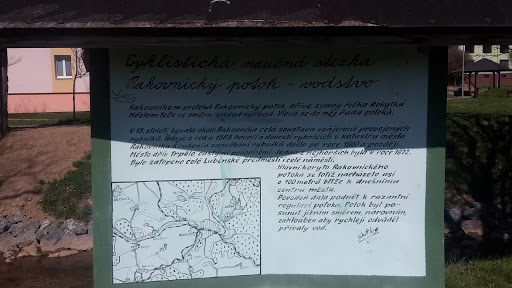 Cyklistická naučná stezka
Rakovnický potok - vodstvo
Rakovníkem protéká Rakovnický potok, dříve zvaný říčka Rokytka
Městem teče ve směru západ východ. Vlévá se do něj řada potoků.
V 15. století bývala okolo Rakovníka celá soustava vzájemně propojených
rybníků. Údaje z roku hovoří o dvaceti rybnících v katastru města
Rakovníka. K zanesení rybníků došlo po roce později.
Město dřív trpělo častými povodněmi. Jedna z nejhorších byla v roce 1872.
Bylo zatopeno celé Lubenské předměstí i celé náměstí.
Hlavní koryto Rakovnického
potoka se totiž nacházelo asi
o 100 metrů blíže k dnešnímu
centru města.
Povodeň dala podnět k razantní
regulaci potoka. Potok byl po-
sunut jižním směrem, narovnán,
zahlouben aby rychleji odváděl
přívaly vod.